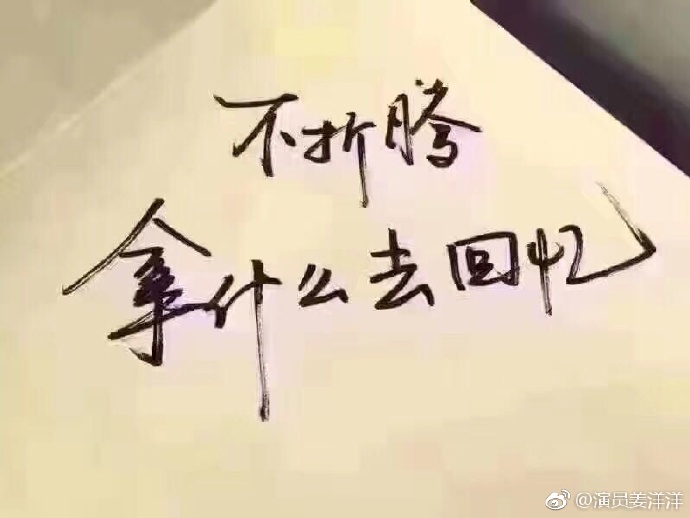 不折腾
拿什么去回忆
@演员姜洋洋